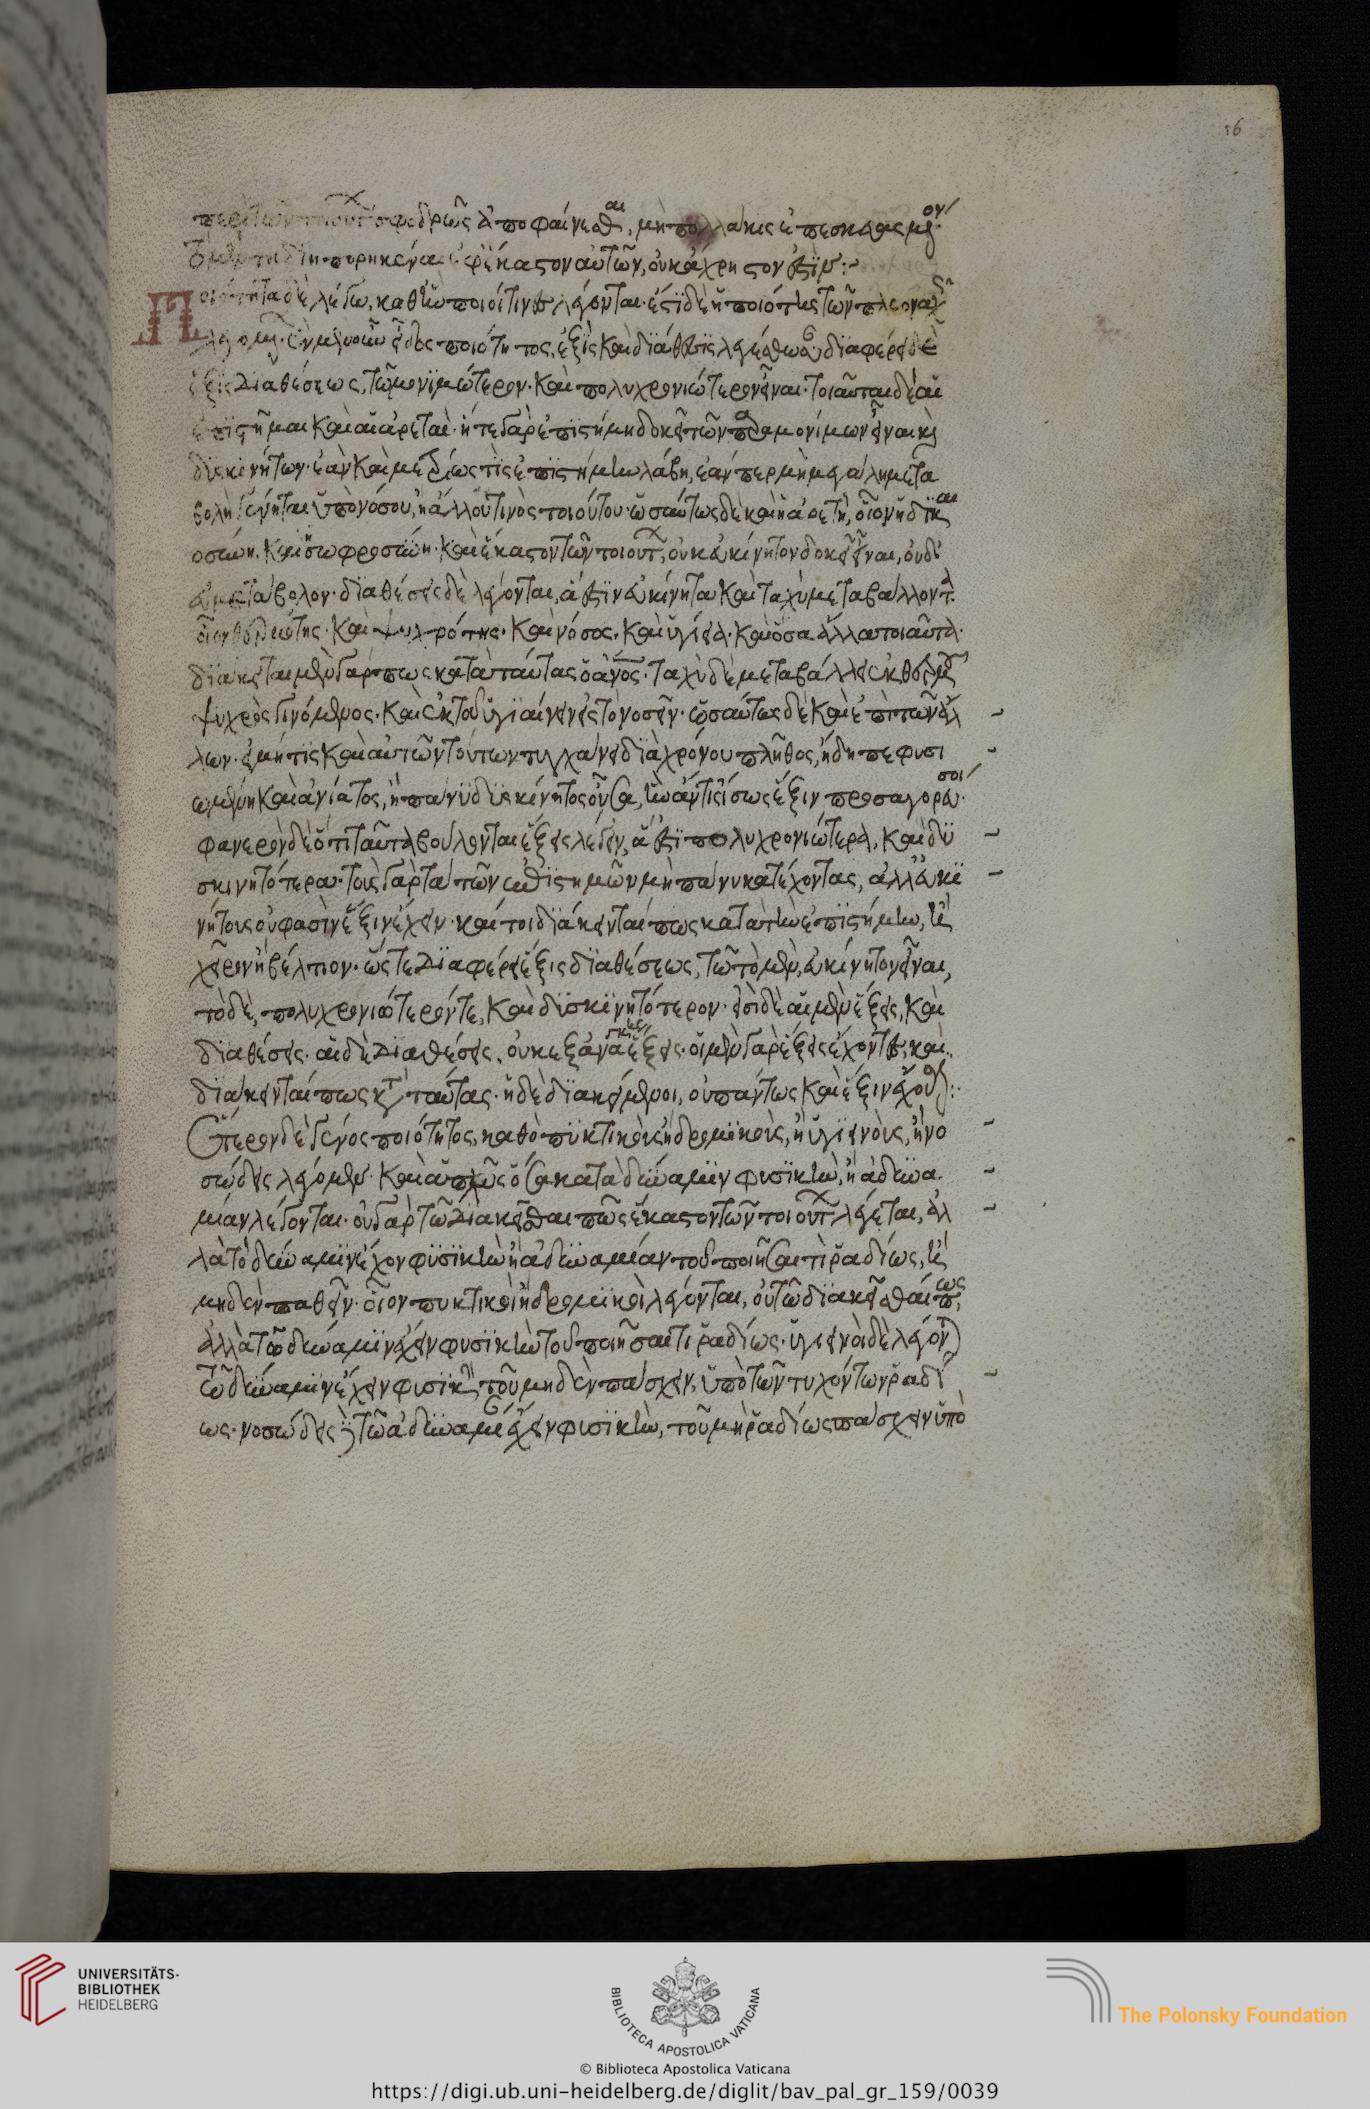 16
περὶ τῶν τοιούτ σφοδρῶς ἀποφαίνεσθαι, μὴ πολλάκις ἐπεσκεμμένον·
τὸ μέντοι διηπορηκέναι ἐφ' ἕκαστον αὐτῶν, οὐκ ἄχρηστον ἐστίν:~
Ποιότητα δὲ λέγω, καθ' ἣν ποιοί τινες λέγονται· ἔστι δὲ ἡ ποιότης τῶν πλεοναχῶς
λεγομένων· ἓν μὲν οὖν εἶδος ποιότητος, ἕξις καὶ διάθεσις λεγέσθωσαν· διαφέρει δὲ
ἕξις διαθέσεως, τῷ μονιμώτερον· καὶ πολυχρονιώτερον εἶναι· τοιαῦται δὲ αἵ τε
ἐπιστῆμαι καὶ αἱ ἀρεταί· ἥ τε γὰρ ἐπιστήμη δοκεῖ τῶν παραμονίμων εἶναι καὶ
δυσκινήτων· ἐὰν καὶ μετρίως τίς ἐπιστήμην λάβη, ἐάν περ μὴ μεγάλη μετα
βολὴ γένηται ὑπὸ νόσου, ἢ ἄλλου τινὸς τοιούτου· ὡσαύτως δὲ καὶ ἡ ἀρετή, οἷον ἡ δικαι
οσύνη. καὶ ἡ σωφροσύνη· καὶ ἕκαστον τῶν τοιούτ, οὐκ εὐκίνητον δοκεῖ εἶναι, οὐδ'
εὐμετάβολον· διαθέσεις δὲ λέγονται, ἅ ἐστιν εὐκίνητα καὶ ταχὺ μεταβάλλοντα.
οἷον θερμότης· καὶ ψυχρότης· καὶ νόσος· καὶ ὑγίεια· καὶ ὅσα ἄλλα τοιαῦτα·
διάκειται μὲν γάρ πως κατὰ ταύτας ὁ ἄνος· ταχὺ δὲ μεταβάλλει ἐκ θερμοῦ
ψυχρὸς γινόμενος· καὶ ἐκ τοῦ ὑγιαίνειν εἰς τὸ νοσεῖν· ὡσαύτως δὲ καὶ ἐπὶ τῶν ἄλ
λων· εἰ μή τις καὶ αὐτῶν τούτων τυγχάνει διὰ χρόνου πλῆθος, ἤδη πεφυσι
ωμένη καὶ ἀνίατος, ἢ πάνυ δυσκίνητος οὖσα, ἣν ἄν τις ἴσως ἕξιν προσαγορεύσοι·
φανερὸν δὲ ὅτι ταῦτα βούλονται ἕξεις λέγειν, ἅ ἐστι πολυχρονιώτερα, καὶ δυ
σκινητότερα· τοὺς γὰρ τῶν ἐπιστημῶν μὴ πάνυ κατέχοντας, ἀλλ' εὐκι
νήτους οὔ φασὶν ἕξιν ἔχειν· καίτοι διάκεινταί πως κατὰ τὴν ἐπιστήμην, ἢ
χεῖρον ἢ βέλτιον· ὥστε διαφέρει ἕξις διαθέσεως, τῷ τὸ μὲν, εὐκίνητον εἶναι,
τὸ δὲ, πολυχρονιώτερόν τε, καὶ δυσκινητότερον· εἰσὶ δὲ αἱ μὲν ἕξεις, καὶ
διαθέσεις· αἱ δὲ διαθέσεις, οὐκ ἐξ ἀνάγκης ἕξεις· οἱ μὲν γὰρ ἕξεις ἔχοντες, καὶ
διάκεινταί πως κατ ταύτας· οἱ δὲ διακείμενοι, οὐ πάντως καὶ ἕξιν ἔχουσι:·
Ἕτερον δὲ γένος ποιότητος, καθὸ πυκτικοὺς ἢ δρομικοὺς, ἢ ὑγιεινοὺς, ἢ νο
σώδεις λέγομεν· καὶ ἁπλῶς ὅσα κατὰ δύναμιν φυσικὴν, ἢ ἀδυνα
μίαν λέγονται· οὐ γὰρ τῷ διακεῖσθαι πῶς ἕκαστον τῶν τοιούτ λέγεται, ἀλ
λὰ τὸ δύναμιν ἔχον φυσικὴν ἢ ἀδυναμίαν τοῦ ποιῆσαι τὶ ῥαδίως, ἢ
μηδὲν παθεῖν· οἷον πυκτικοὶ ἢ δρομικοὶ λέγονται, οὐ τῷ διακεῖσθαί πως,
ἀλλὰ τῷ δύναμιν ἔχειν φυσικὴν τοῦ ποιῆσαί τι ῥαδίως· ὑγιεινοὶ δὲ λέγονται
τῷ δύναμιν ἔχειν φυσικὴν τοῦ μηδὲν πάσχειν, ὑπὸ τῶν τυχόντων ῥαδί
ως· νοσώδεις δὲ τῷ ἀδυναμίαν ἔχειν φυσικὴν, τοῦ μὴ ῥαδίως πάσχειν ὑπὸ
UNIVERSITÄTS-
BIBLIOTHEK
HEIDELBERG
BIBLIOTECA APOSTOLICA VATICANA
The Polonsky Foundation
© Biblioteca Apostolica Vaticana
https://digi.ub.uni-heidelberg.de/diglit/bav_pal_gr_159/0039